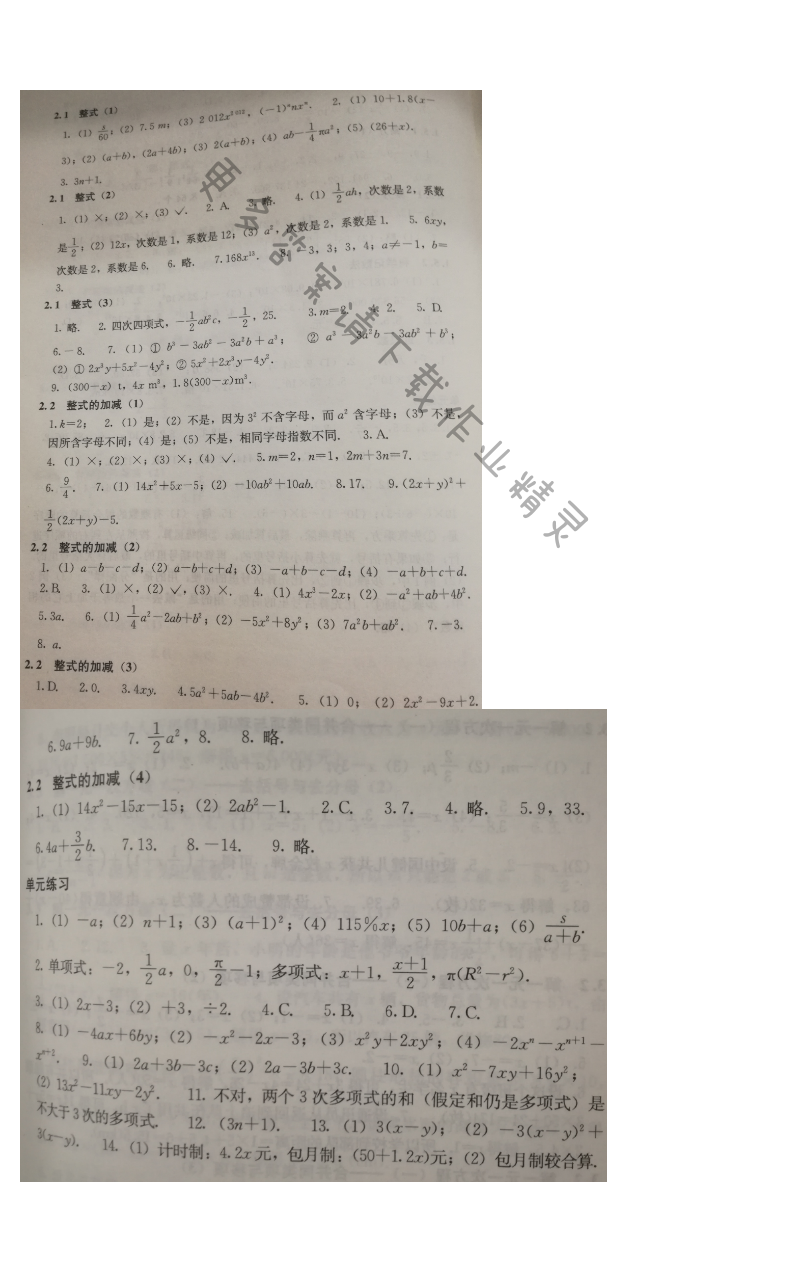 2.1 整式（1）
1.（1）s/60；（2）7.5 m；（3）2 012x²⁰¹²，(−1)ⁿnxⁿ. 2.（1）10+1.8(x−
3)；（2）(a+b)，(2a+4b)；（3）2(a+b)；（4）ab−1/4 πa²；（5）(26+x).
3. 3n+1.
2.1 整式（2）
1.（1）×；（2）×；（3）√. 2. A. 3. 略. 4.（1）1/2 ah，次数是2，系数
是1/2；（2）12x，次数是1，系数是12；（3）a²，次数是2，系数是1. 5. 6xy，
次数是2，系数是6. 6. 略. 7. 168x¹⁵. 8. −3，3；3，4；a≠−1，b=
3.
2.1 整式（3）
1. 略. 2. 四次四项式，−1/2 ab²c，−1/2，25. 3. m=2. 2. 5. D.
6. −8. 7.（1）① b³−3ab²−3a²b+a³； ② a³−3a²b−3ab²+b³；
（2）① 2x³y+5x²−4y²；② 5x²+2x³y−4y².
9. (300−x) t，4x m³，1.8(300−x)m³.
2.2 整式的加减（1）
1. k=2； 2.（1）是；（2）不是，因为3²不含字母，而a²含字母；（3）不是，
因所含字母不同；（4）是；（5）不是，相同字母指数不同. 3. A.
4.（1）×；（2）×；（3）×；（4）√. 5. m=2，n=1，2m+3n=7.
6. 9/4. 7.（1）14x²+5x−5；（2）−10ab²+10ab. 8. 17. 9. (2x+y)²+
1/2(2x+y)−5.
2.2 整式的加减（2）
1.（1）a−b−c−d；（2）a−b+c+d；（3）−a+b−c−d；（4）−a+b+c+d.
2. B. 3.（1）×，（2）√，（3）×. 4.（1）4x³−2x；（2）−a²+ab+4b².
5. 3a. 6.（1）1/4 a²−2ab+b²；（2）−5x²+8y²；（3）7a²b+ab². 7. −3.
8. a.
2.2 整式的加减（3）
1. D. 2. 0. 3. 4xy. 4. 5a²+5ab−4b². 5.（1）0；（2）2x²−9x+2.
6. 9a+9b. 7. 1/2 a²，8. 8. 略.
2.2 整式的加减（4）
1.（1）14x²−15x−15；（2）2ab²−1. 2. C. 3. 7. 4. 略. 5. 9，33.
6. 4a+3/2 b. 7. 13. 8. −14. 9. 略.
单元练习
1.（1）−a；（2）n+1；（3）(a+1)²；（4）115%x；（5）10b+a；（6）s/(a+b).
2. 单项式：−2，1/2 a，0，π/2−1；多项式：x+1，(x+1)/2，π(R²−r²).
3.（1）2x−3；（2）+3，÷2. 4. C. 5. B. 6. D. 7. C.
8.（1）−4ax+6by；（2）−x²−2x−3；（3）x²y+2xy²；（4）−2xⁿ−xⁿ⁺¹−
xⁿ⁺². 9.（1）2a+3b−3c；（2）2a−3b+3c. 10.（1）x²−7xy+16y²；
（2）13x²−11xy−2y². 11. 不对，两个3次多项式的和（假定和仍是多项式）是
不大于3次的多项式. 12. (3n+1). 13.（1）3(x−y)；（2）−3(x−y)²+
3(x−y). 14.（1）计时制：4.2x元，包月制：(50+1.2x)元；（2）包月制较合算.
更多答案请下载作业精灵